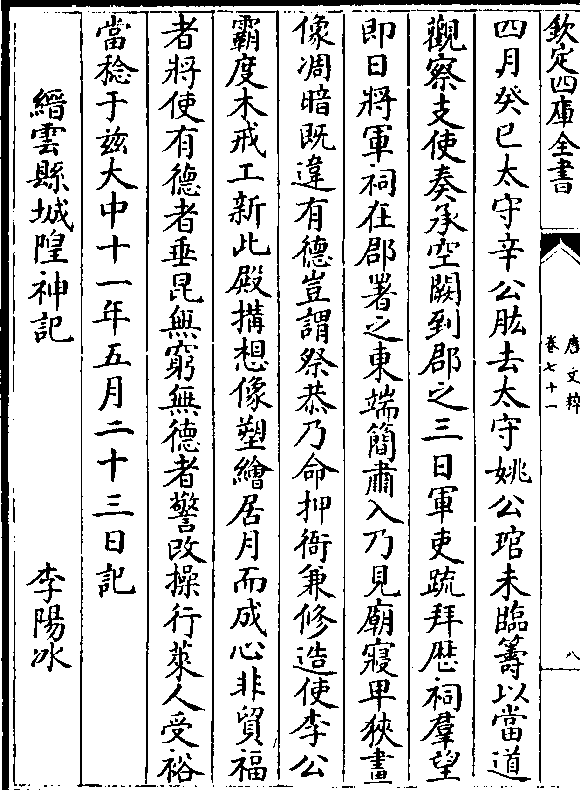 欽定四庫全書
唐文粹
卷七十一
八
四月癸巳太守辛公肱去太守姚公琯未臨籌以當道
觀察支使奏承空闕到郡之三日軍吏疏拜歴祠羣望
即日將軍祠在郡署之東端簡肅入乃見廟寢卑狹畫
像凋暗既違有德豈謂祭恭乃命押衙兼修造使李公
霸度木戒工新此殿搆想像塑繪居月而成心非貿福
者將使有德者垂昆無窮無德者警改操行萊人受裕
當稔于兹大中十一年五月二十三日記
縉雲縣城隍神記
李陽冰